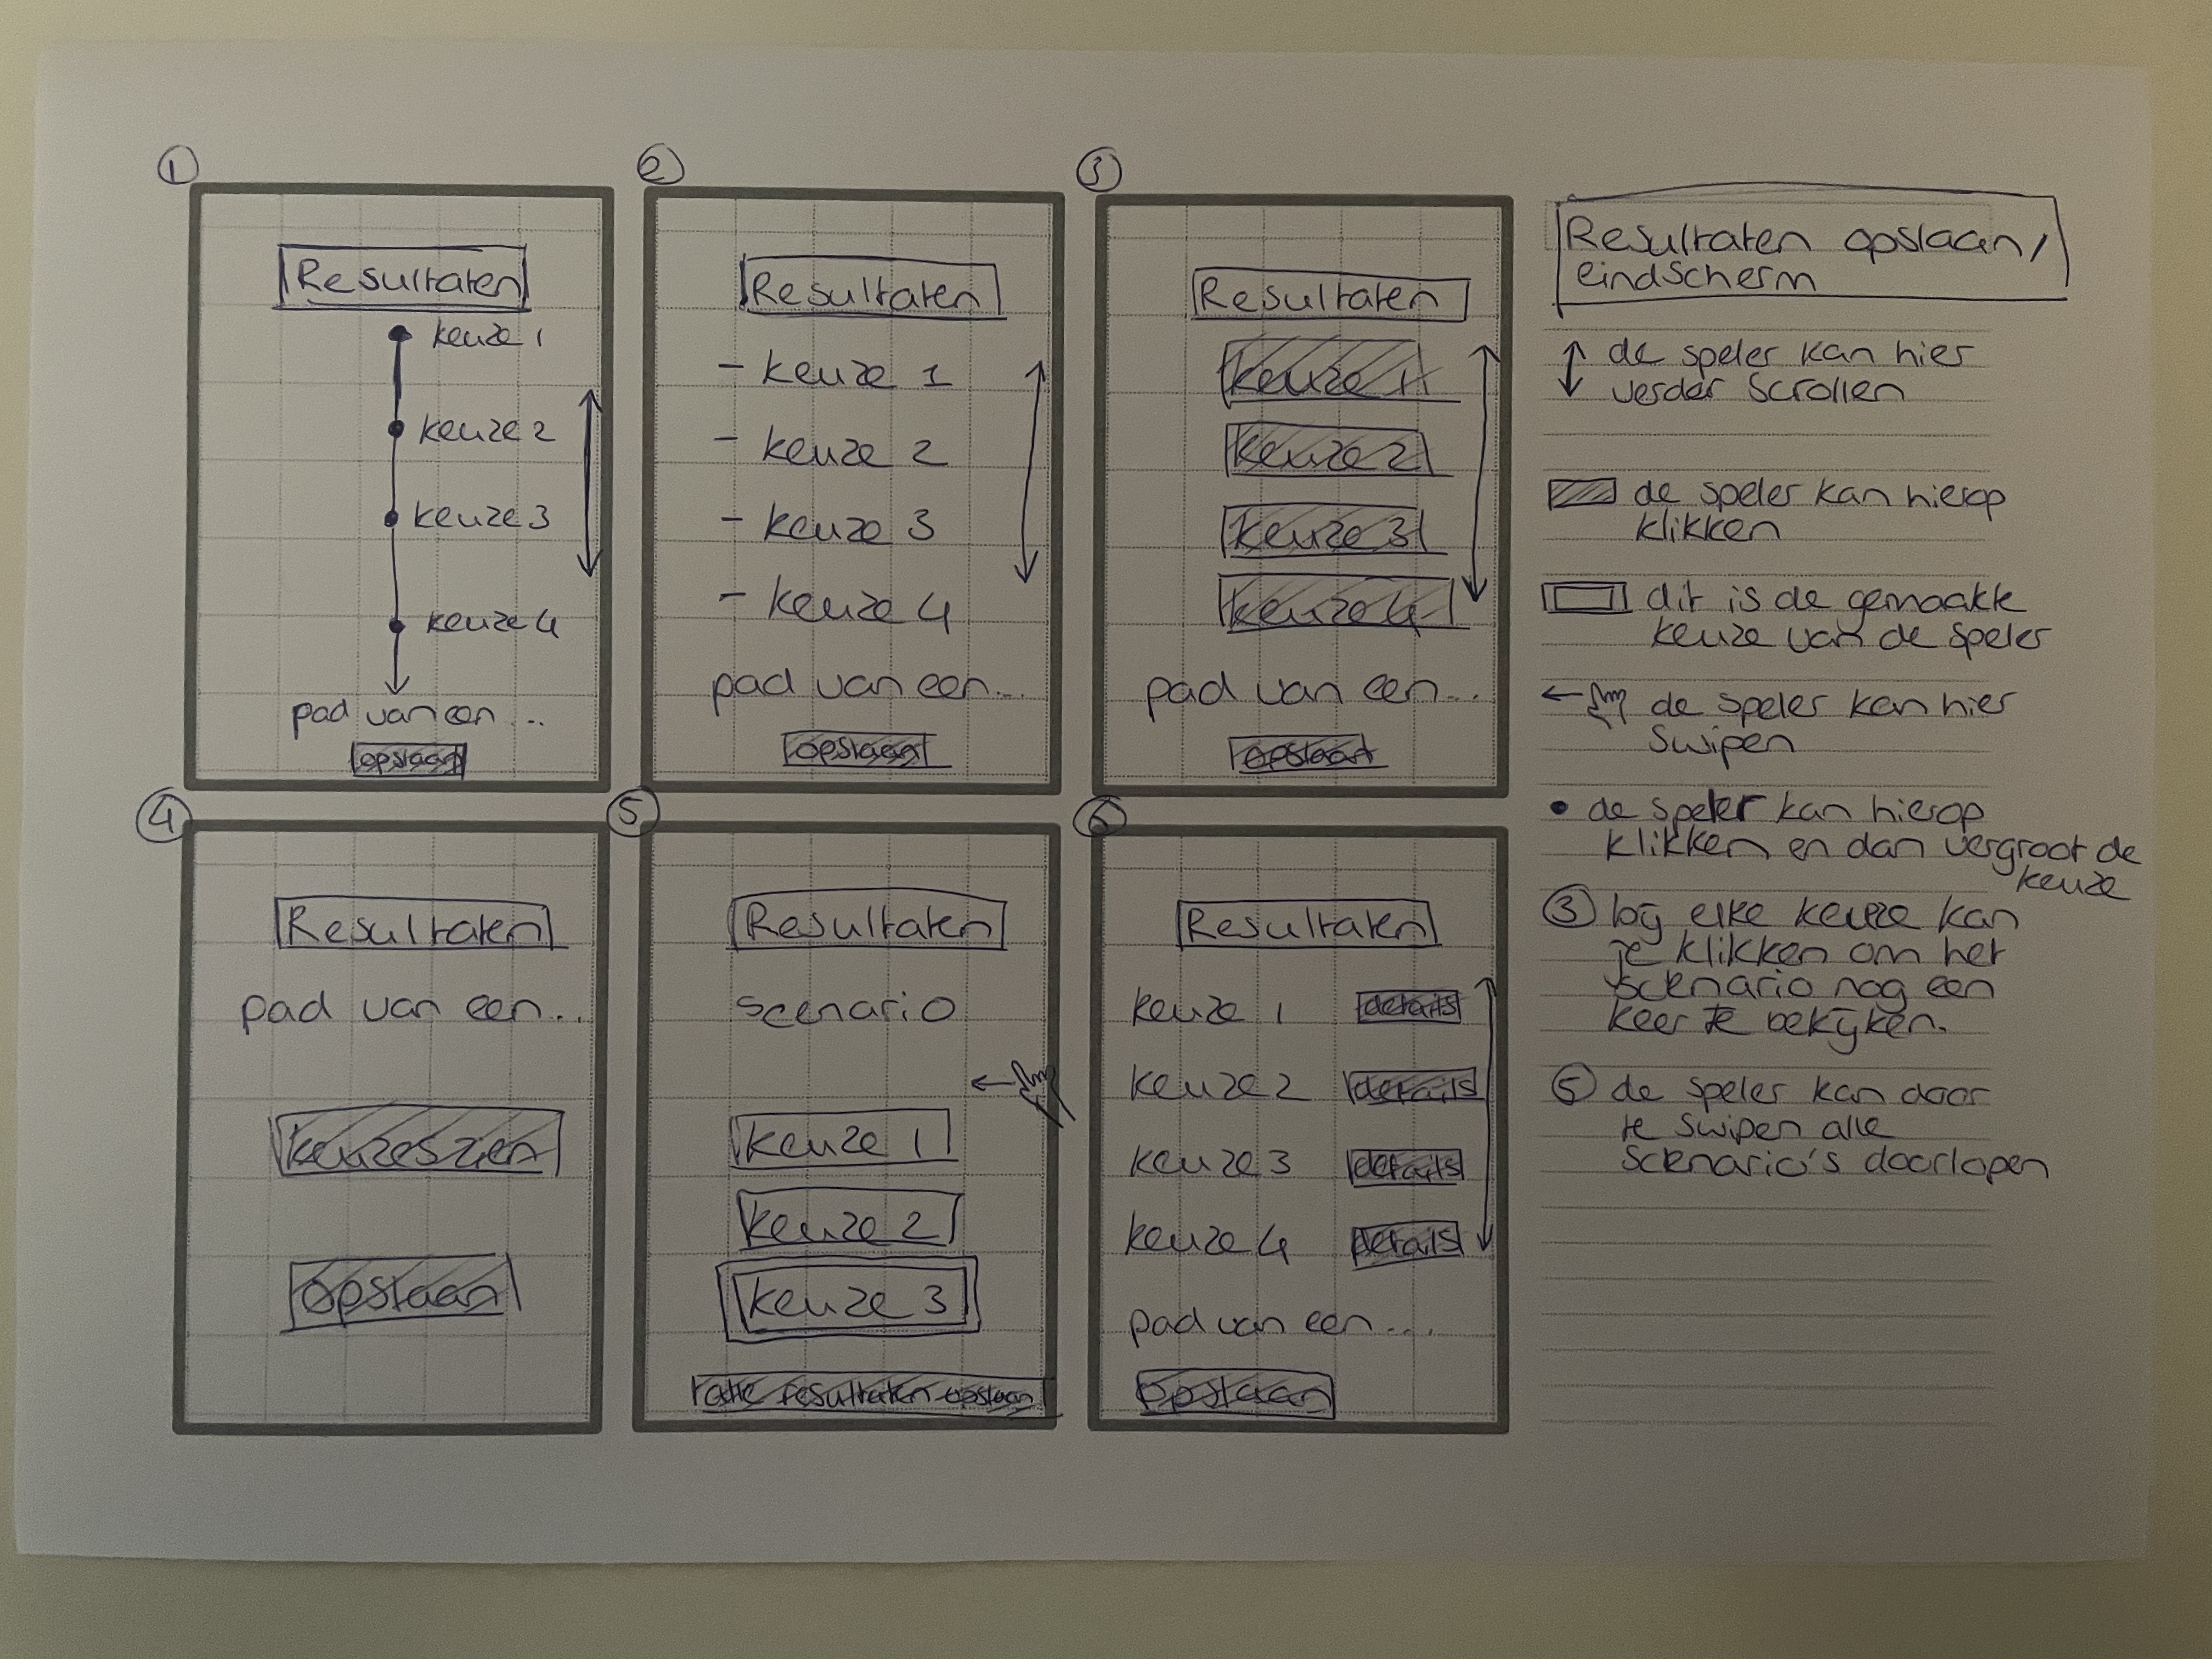 ①
Resultaten
keuze 1
keuze 2
keuze 3
keuze 4
pad van een ...
opslaan
②
Resultaten
- keuze 1
- keuze 2
- keuze 3
- keuze 4
pad van een...
opslaan
③
Resultaten
keuze 1
keuze 2
keuze 3
keuze 4
pad van een...
opslaan
④
Resultaten
pad van een...
keuzes zien
opslaan
⑤
Resultaten
scenario
keuze 1
keuze 2
keuze 3
alle resultaten opslaan
⑥
Resultaten
keuze 1 details
keuze 2 details
keuze 3 details
keuze 4 details
pad van een...
opslaan
Resultaten opslaan/
eindscherm
de speler kan hier
verder scrollen
de speler kan hierop
klikken
dit is de gemaakte
keuze van de speler
de speler kan hier
swipen
de speler kan hierop
klikken en dan vergroot de
keuze
③ bij elke keuze kan
je klikken om het
scenario nog een
keer te bekijken.
⑤ de speler kan door
te swipen alle
scenario's doorlopen